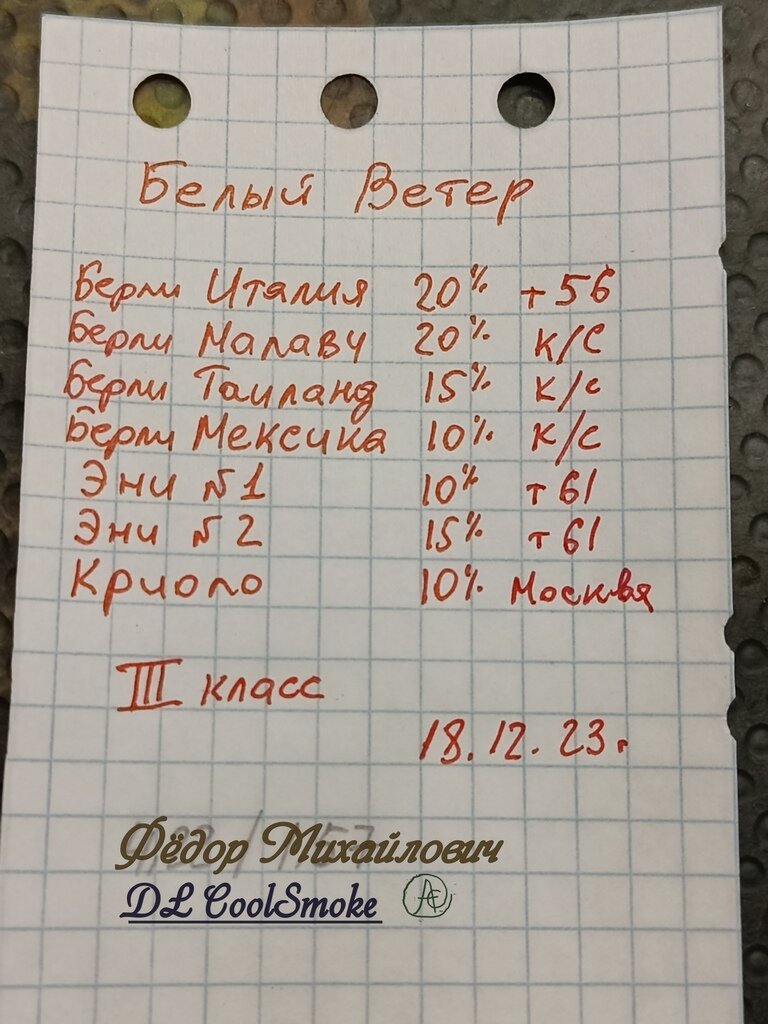 Белый Ветер
Берли Италия 20% +56
Берли Малави 20% к/с
Берли Таиланд 15% к/с
Берли Мексика 10% к/с
Эни №1 10% т61
Эни №2 15% т61
Криоло 10% Москва
III класс
18.12.23г
Фёдор Михайлович
DL CoolSmoke